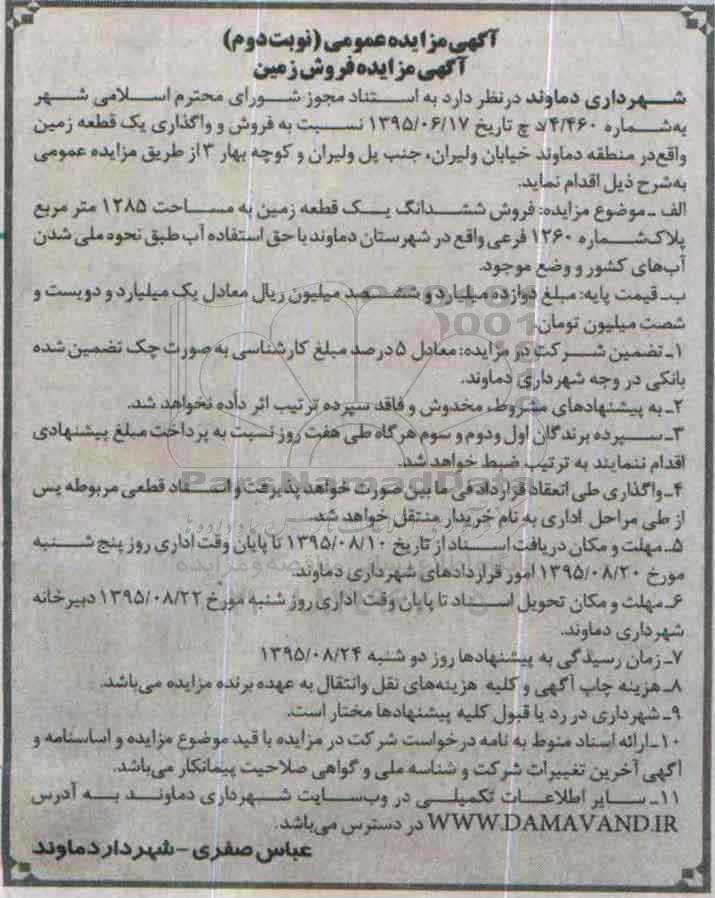 آگهی مزایده عمومی (نوبت دوم)
آگهی مزایده فروش زمین
شهرداری دماوند در نظر دارد به استناد مجوز شورای محترم اسلامی شهر
به شماره ۴/۴۶۰/د چ تاریخ ۱۳۹۵/۰۶/۱۷ نسبت به فروش و واگذاری یک قطعه زمین
واقع در منطقه دماوند خیابان ولیران، جنب پل ولیران و کوچه بهار ۳ از طریق مزایده عمومی
به شرح ذیل اقدام نماید.
الف - موضوع مزایده: فروش ششدانگ یک قطعه زمین به مساحت ۱۲۸۵ متر مربع
پلاک شماره ۱۲۶۰ فرعی واقع در شهرستان دماوند با حق استفاده آب طبق نحوه ملی شدن
آب‌های کشور و وضع موجود.
ب- قیمت پایه: مبلغ دوازده میلیارد و ششصد میلیون ریال معادل یک میلیارد و دویست و
شصت میلیون تومان.
۱- تضمین شرکت در مزایده: معادل ۵ درصد مبلغ کارشناسی به صورت چک تضمین شده
بانکی در وجه شهرداری دماوند.
۲- به پیشنهادهای مشروط، مخدوش و فاقد سپرده ترتیب اثر داده نخواهد شد.
۳- سپرده برندگان اول و دوم و سوم هرگاه طی هفت روز نسبت به پرداخت مبلغ پیشنهادی
اقدام ننمایند به ترتیب ضبط خواهد شد.
۴- واگذاری طی انعقاد قرارداد فی ما بین صورت خواهد پذیرفت و اسناد قطعی مربوطه پس
از طی مراحل اداری به نام خریدار منتقل خواهد شد.
۵- مهلت و مکان دریافت اسناد از تاریخ ۱۳۹۵/۰۸/۱۰ تا پایان وقت اداری روز پنج شنبه
مورخ ۱۳۹۵/۰۸/۲۰ امور قراردادهای شهرداری دماوند.
۶- مهلت و مکان تحویل اسناد تا پایان وقت اداری روز شنبه مورخ ۱۳۹۵/۰۸/۲۲ دبیرخانه
شهرداری دماوند.
۷- زمان رسیدگی به پیشنهادها روز دو شنبه ۱۳۹۵/۰۸/۲۴
۸- هزینه چاپ آگهی و کلیه هزینه‌های نقل وانتقال به عهده برنده مزایده می‌باشد.
۹- شهرداری در رد یا قبول کلیه پیشنهادها مختار است.
۱۰- ارائه اسناد منوط به نامه درخواست شرکت در مزایده با قید موضوع مزایده و اساسنامه و
آگهی آخرین تغییرات شرکت و شناسه ملی و گواهی صلاحیت پیمانکار می‌باشد.
۱۱- سایر اطلاعات تکمیلی در وب‌سایت شهرداری دماوند به آدرس
WWW.DAMAVAND.IR در دسترس می‌باشد.
عباس صفری - شهردار دماوند
ParsNamadData